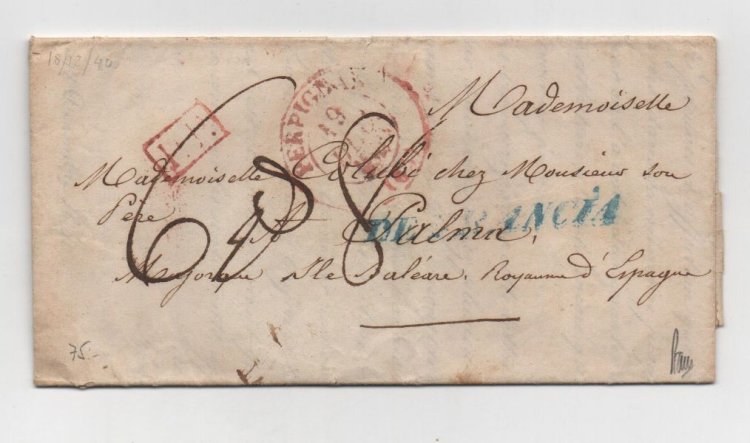 18/12/40
PERPIGNAN
19
Mademoiselle
Mademoiselle chez Monsieur son
Père
A Palma,
DE FRANCIA
Majorque Ile Baléare, Royaume d'Espagne
75.-